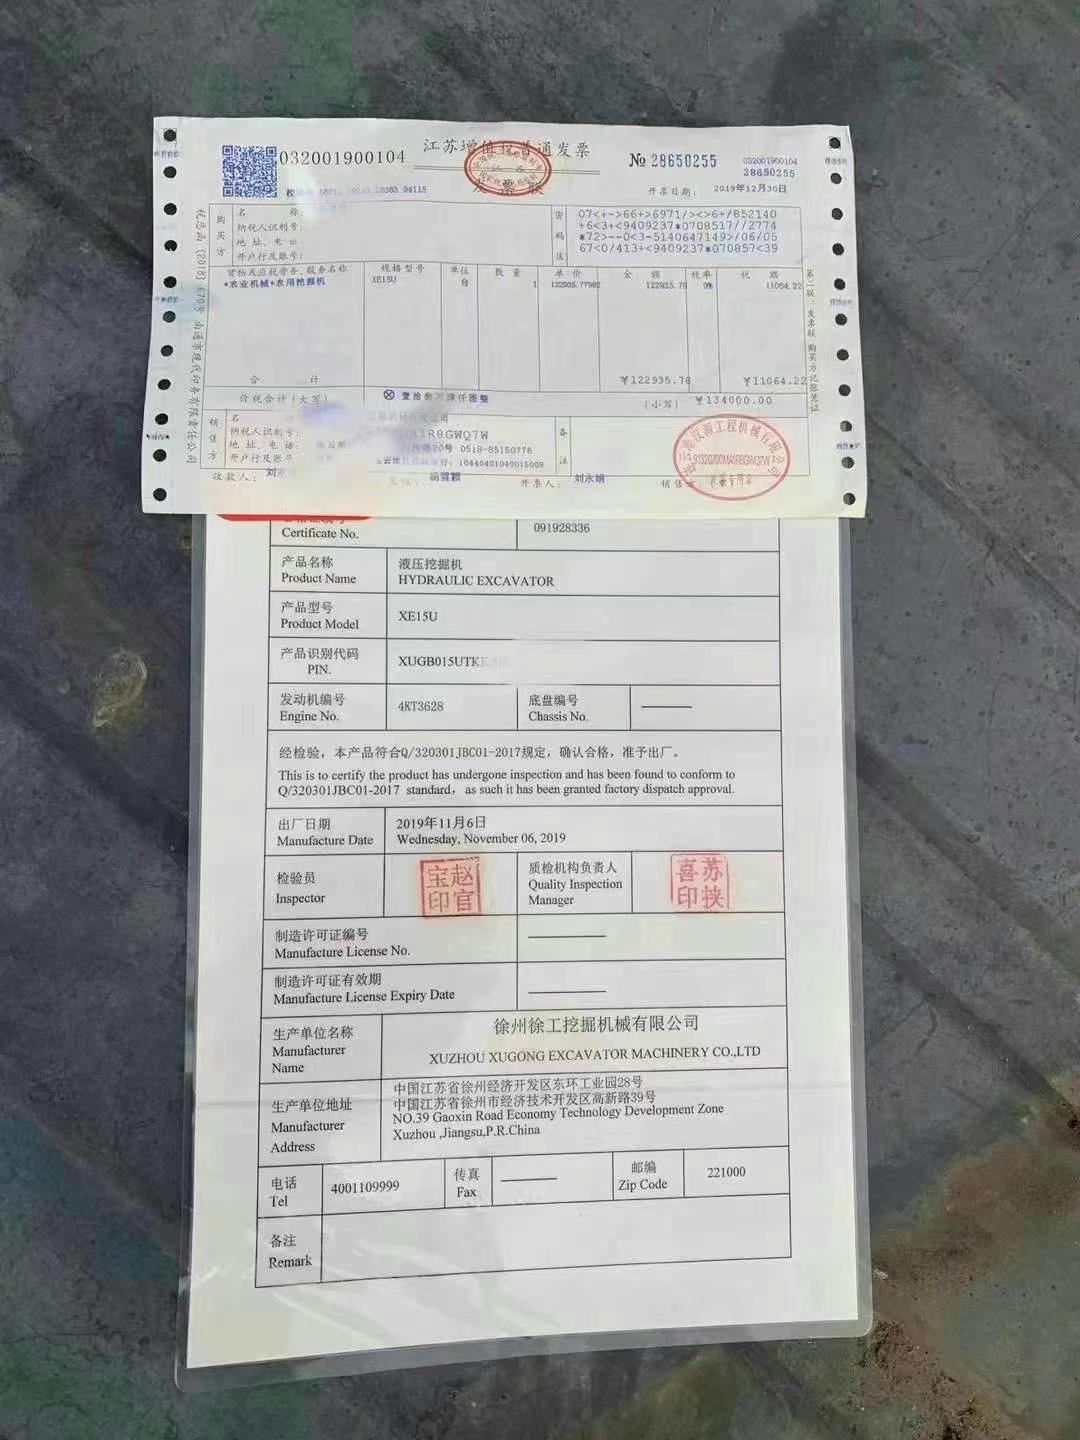 032001900104
江苏增值税普通发票
发票联
№ 28650255
032001900104
28650255
94115
开票日期: 2019年12月30日
税总函 [2018] 670号 南通市现代印务有限责任公司
购买方
名 称:
纳税人识别号:
地 址、电 话:
开户行及账号:
密码区
07<+->66+>6971/><>6+/852140
+6<3+<9409237*0708517//2774
*72>--0<3-5140647149>/06/05
67<0/413+<9409237*070857<39
货物或应税劳务、服务名称 规格型号 单位 数 量 单 价 金 额 税率 税 额
*农业机械*农用挖掘机 XE15U 台 1 122935.77982 122935.78 9% 11064.22
合 计 ¥122935.78 ¥11064.22
价税合计(大写) ⊗ 壹拾叁万肆仟圆整 (小写) ¥134000.00
销售方
名 称:
纳税人识别号:
R8GWQ7W
地 址、电 话:
20号 0518-85150776
开户行及账号:
10440401040015008
备注
收款人:
杨雪颖
开票人: 刘永娟
销售方:
第二联:发票联 购买方记账凭证
汉源工程机械有限公司
91320700MA1R8GWQ7W
发票专用章
Certificate No. 091928336
产品名称 液压挖掘机
Product Name HYDRAULIC EXCAVATOR
产品型号
Product Model XE15U
产品识别代码
PIN. XUGB015UTKK
发动机编号 底盘编号
Engine No. 4KT3628 Chassis No. ———
经检验，本产品符合Q/320301JBC01-2017规定，确认合格，准予出厂。
This is to certify the product has undergone inspection and has been found to conform to
Q/320301JBC01-2017 standard，as such it has been granted factory dispatch approval.
出厂日期 2019年11月6日
Manufacture Date Wednesday, November 06, 2019
检验员
Inspector
赵官宝印
质检机构负责人
Quality Inspection
Manager
苏挟喜印
制造许可证编号
Manufacture License No. ———
制造许可证有效期
Manufacture License Expiry Date ———
生产单位名称
Manufacturer
Name
徐州徐工挖掘机械有限公司
XUZHOU XUGONG EXCAVATOR MACHINERY CO.,LTD
生产单位地址
Manufacturer
Address
中国江苏省徐州经济开发区东环工业园28号
中国江苏省徐州市经济技术开发区高新路39号
NO.39 Gaoxin Road Economy Technology Development Zone
Xuzhou ,Jiangsu,P.R.China
电话
Tel
4001109999
传真
Fax
———
邮编
Zip Code
221000
备注
Remark